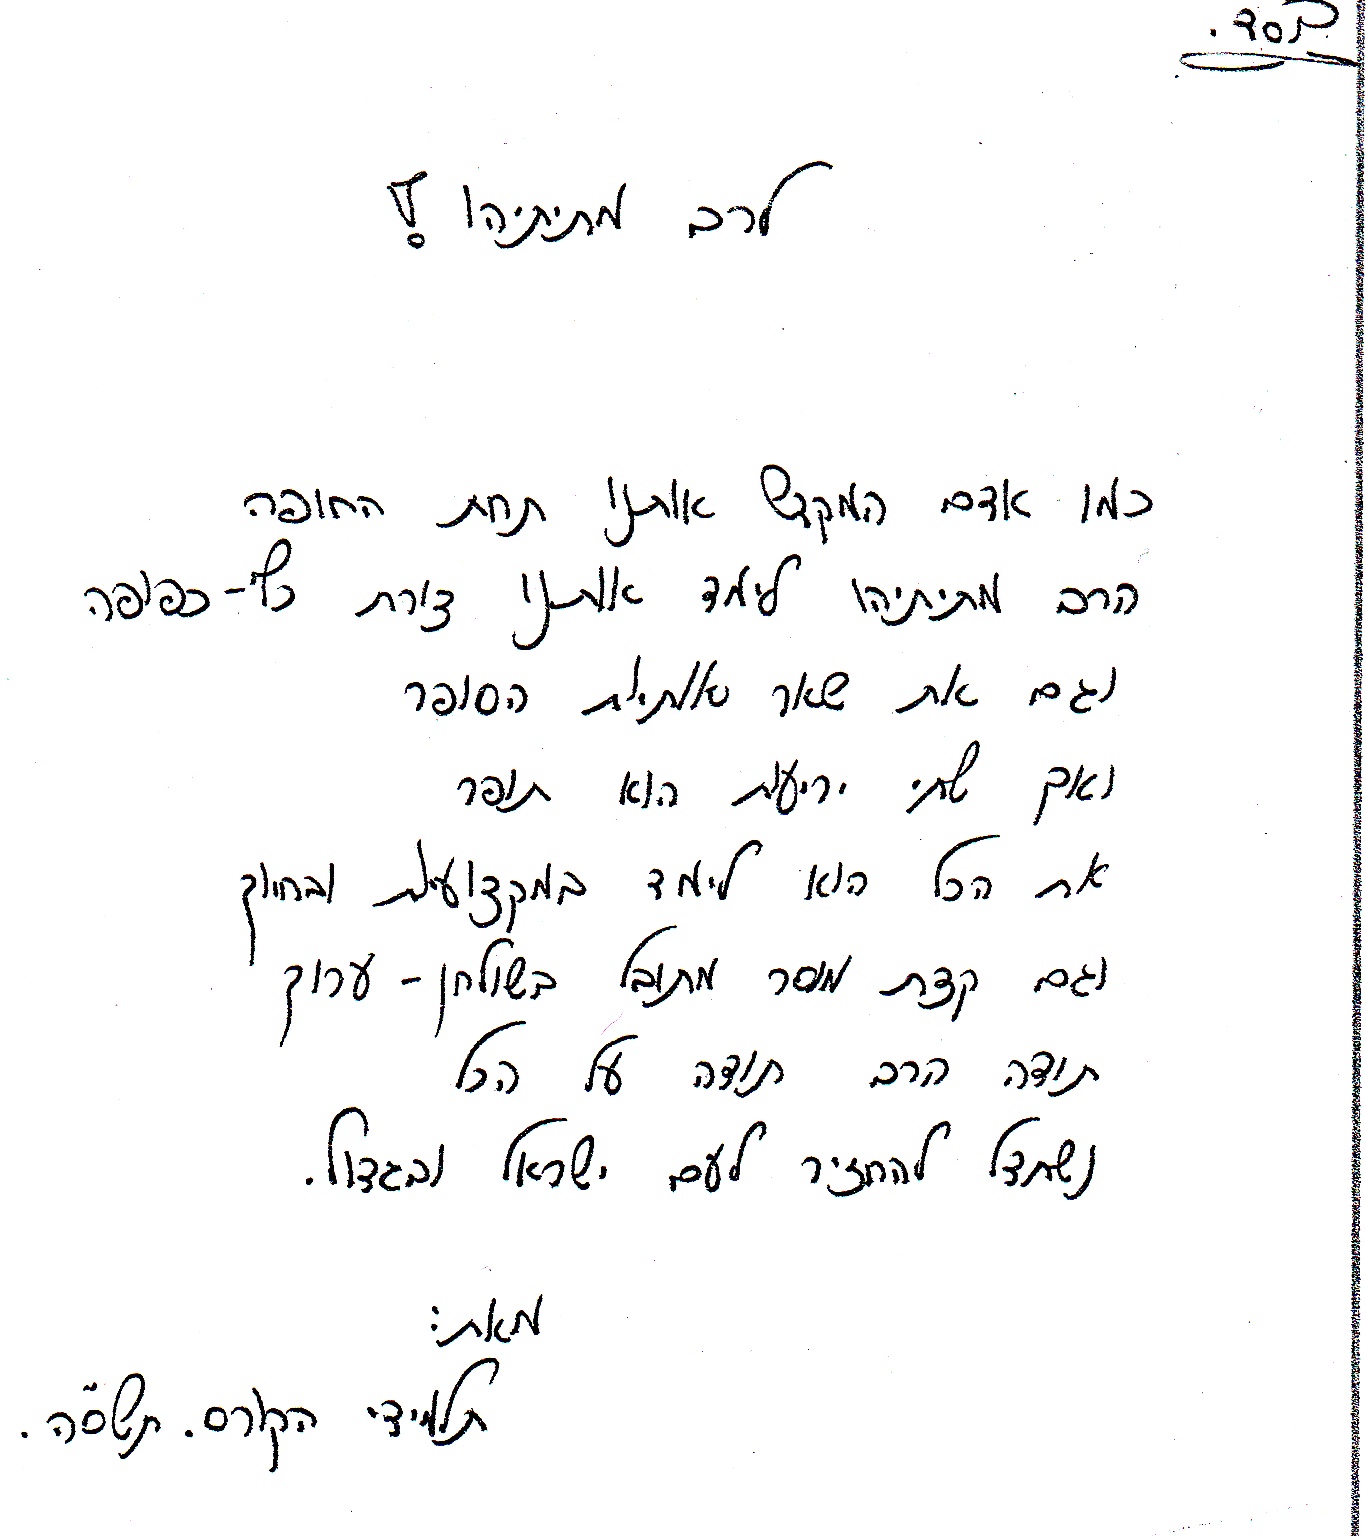 בסד.
לרב מתיתיהו !
כמו אדם המקדש אותנו תחת החופה
הרב מתיתיהו לימד אותנו צורת כף-כפופה
וגם את שאר אותיות הסופר
ואיך שתי יריעות הוא תופר
את הכל הוא לימד במקצועיות ובחיוך
וגם קצת מוסר מתובל בשולחן-ערוך
תודה הרב תודה על הכל
נשתדל להחזיר לעם ישראל ובגדול.
מאת:
תלמידי הקורס. תשס"ה.